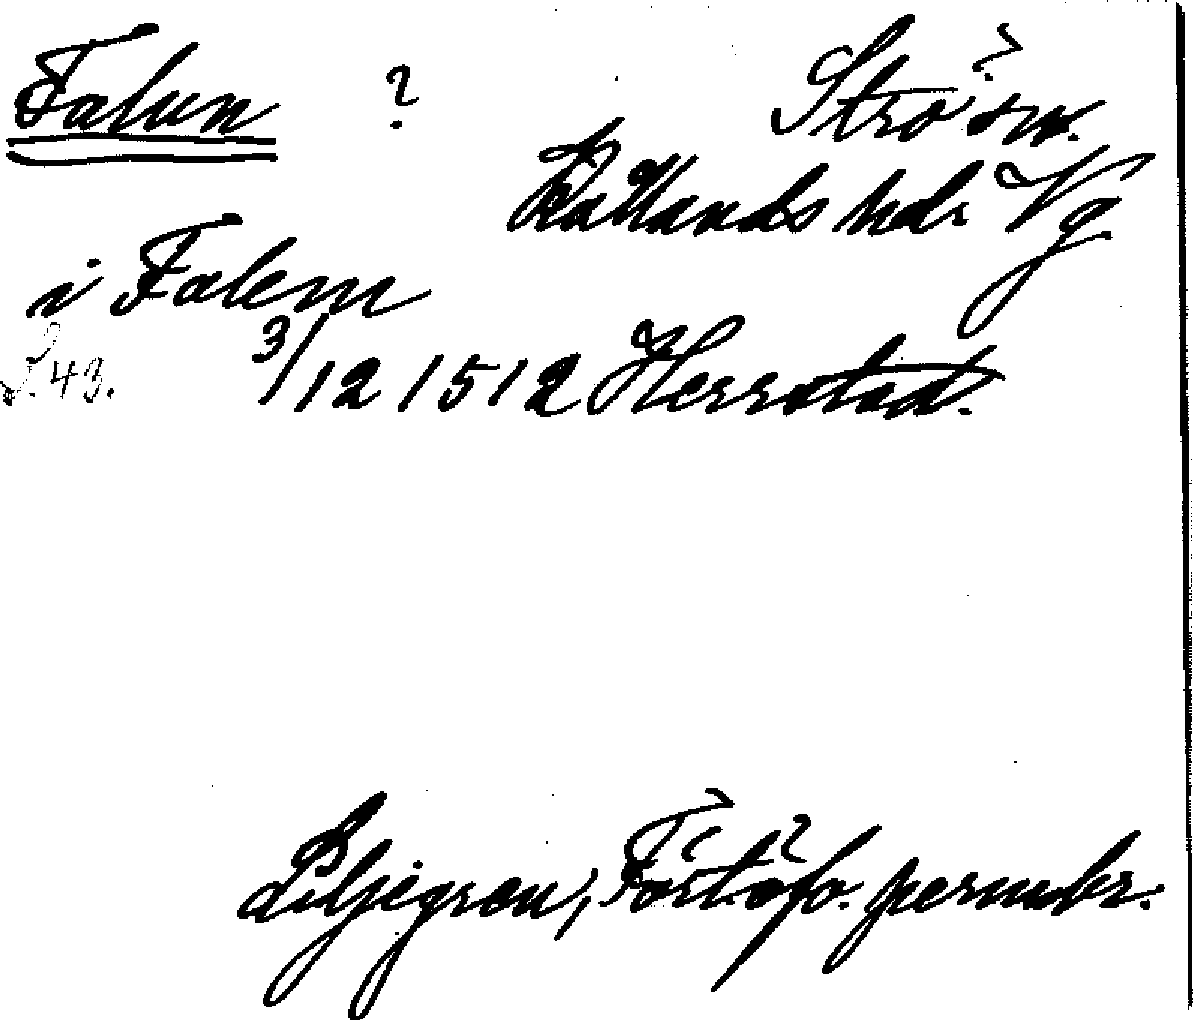 Falun ? Ströms sn.
Kållands hd. Vg
i Falem
S. 43. 3/12 1512 Herrstad.
Liljegren, Fört. ö. fo. permbr.